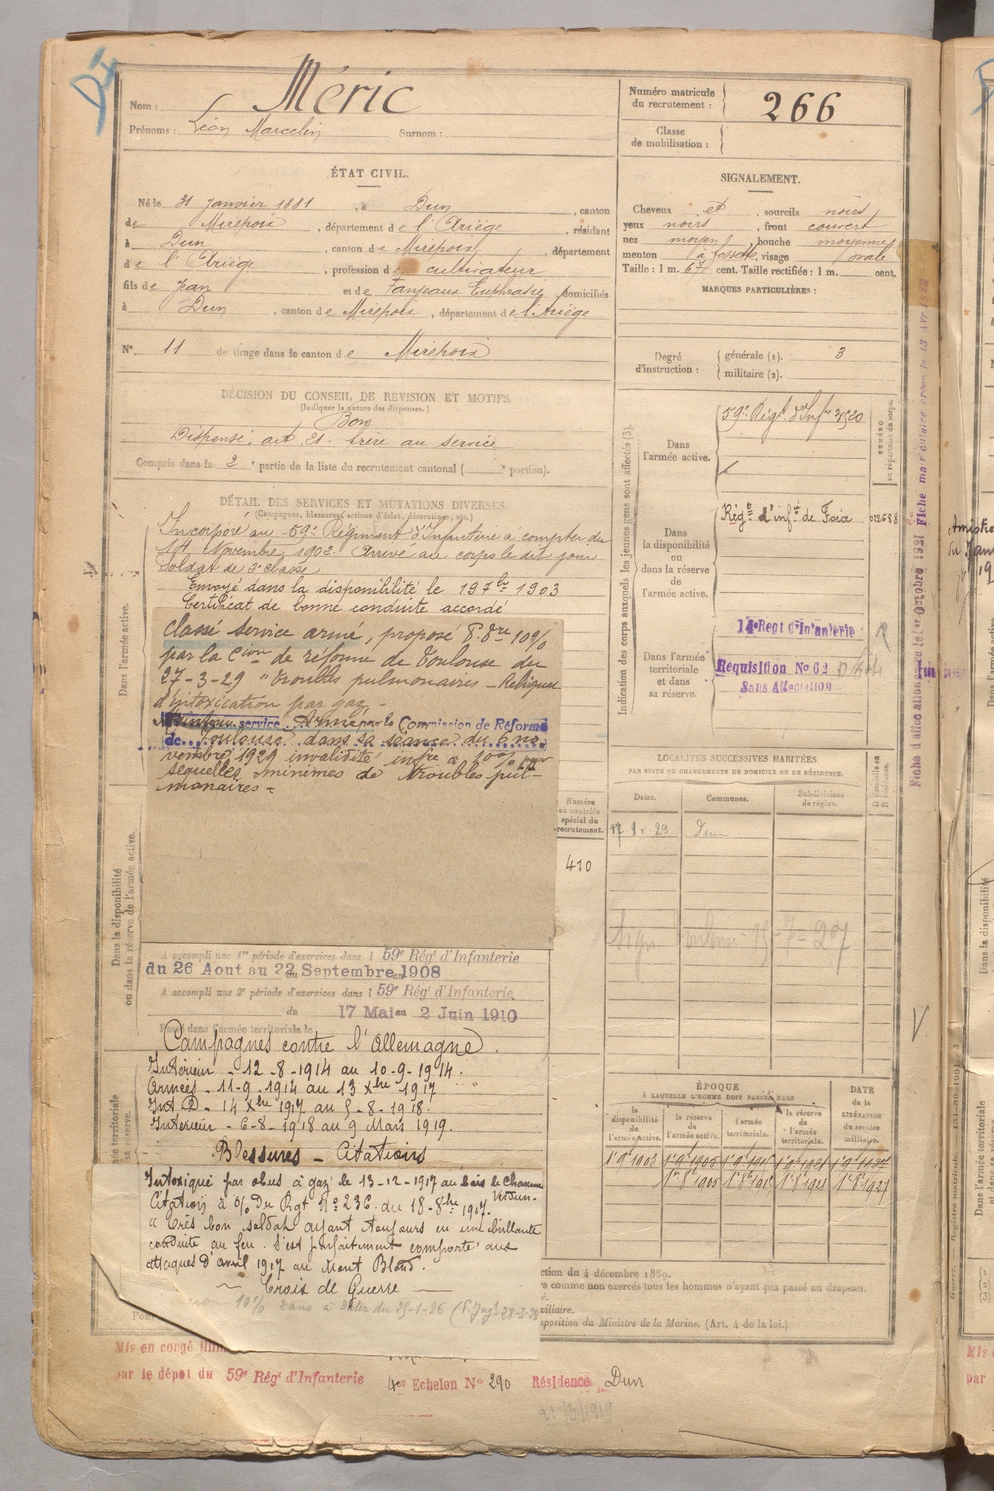 Nom : Méric
Prénoms : Léon Marcelin Surnom :
Numéro matricule du recrutement : 266
Classe de mobilisation :
ÉTAT CIVIL.
Né le 31 janvier 1881, à Dun, canton
de Mirepoix, département de l'Ariège, résidant
à Dun, canton de Mirepoix, département
de l'Ariège, profession de cultivateur
fils de Jean et de Fanjeaux Euphrasie, domiciliés
à Dun, canton de Mirepoix, département de l'Ariège
N° 11 de tirage dans le canton de Mirepoix
SIGNALEMENT.
Cheveux et, sourcils noirs
yeux noirs, front couvert
nez moyen, bouche moyenne
menton à fossette, visage ovale
Taille : 1 m. 67 cent. Taille rectifiée : 1 m. cent.
MARQUES PARTICULIÈRES :
Degré d'instruction : générale (1). 3
militaire (2).
DÉCISION DU CONSEIL DE REVISION ET MOTIFS.
(Indiquer la nature des dispenses.)
Bon
Dispensé, art. 21. frère au service
Compris dans la 2e partie de la liste du recrutement cantonal ( portion).
DÉTAIL DES SERVICES ET MUTATIONS DIVERSES.
(Campagnes, blessures, actions d'éclat, décorations, etc.)
Dans l'armée active.
Incorporé au 59e Régiment d'Infanterie à compter du
Novembre 1902. Arrivé au corps le dit jour
Soldat de 2e classe
Envoyé dans la disponibilité le 19 7bre 1903
Certificat de bonne conduite accordé
Classé service armé, proposé 10%
par la Cion de réforme de Toulouse du
27-3-29 "Troubles pulmonaires – Reliquat
d'intoxication par gaz –
service Armé par la Commission de Réforme
de Toulouse dans sa séance du 6 no-
vembre 1929 invalidité infre à 10% pour
sequelles minimes de troubles pul-
monaires –
Dans la disponibilité ou dans la réserve de l'armée active.
A accompli une 1re période d'exercices dans l 59e Régt d'Infanterie
du 26 Aout au 22 Septembre 1908
A accompli une 2e période d'exercices dans l 59e Régt d'Infanterie
du 17 Mai au 2 Juin 1910
Passé dans l'armée territoriale le
Campagnes contre l'Allemagne.
Intérieur – 12-8-1914 au 10-9-1914.
Armées – 11-9-1914 au 13 Xbre 1917
Int. D – 14 Xbre 1917 au 5-8-1918.
Intérieur – 6-8-1918 au 9 Mars 1919.
Blessures – Citations
Intoxiqué par obus à gaz le 13-12-1917 au bois le Chaume
Verdun.
Citation à O/ Du Rgt N° 236 du 18-8bre 1917.
"Très bon soldat ayant toujours eu une brillante
conduite au feu. S'est parfaitement comporté aux
attaques d'avril 1917 au Mont Blond.
Croix de Guerre
10%
Mis en congé
par le dépôt du 59e Régt d'Infanterie
4er Echelon N° 290 Résidence Dun
Indication des corps auxquels les jeunes gens sont affectés (3).
Dans l'armée active.
59e Régt d'Infrie 3520
NUMÉRO au répertoire du corps.
Dans la disponibilité ou dans la réserve de l'armée active.
Régt d'infie de Foix
Dans l'armée territoriale et dans sa réserve.
14e Regt d'Infanterie
Requisition No 62
Sans Affectation
LOCALITÉS SUCCESSIVES HABITÉES
PAR SUITE DE CHANGEMENTS DE DOMICILE OU DE RÉSIDENCE.
Numéro au contrôle spécial du recrutement.
410
Dates. Communes. Subdivisions de région. D domicile ou R résidence.
Dun
ÉPOQUE
À LAQUELLE L'HOMME DOIT PASSER DANS
DATE de la LIBÉRATION du service militaire.
la disponibilité de l'armée active. la réserve de l'armée active. l'armée territoriale. la réserve de l'armée territoriale.
ction du 4 décembre 1889.
e comme non exercés tous les hommes n'ayant pas passé au drapeau.
xiliaire.
sposition du Ministre de la Marine. (Art. 4 de la loi.)